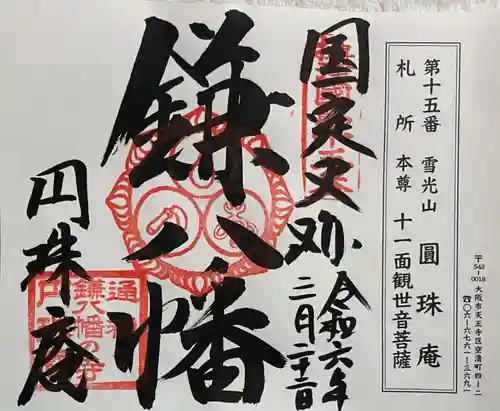 〒543-0018 大阪市天王寺区空清町四ー二
☎〇六ー六七六一ー三六九一
第十五番 雪光山 圓珠庵
札所 本尊 十一面観世音菩薩
国定史跡
令和六年
三月二十二日
鎌八幡
円珠庵
通称
鎌八幡の寺